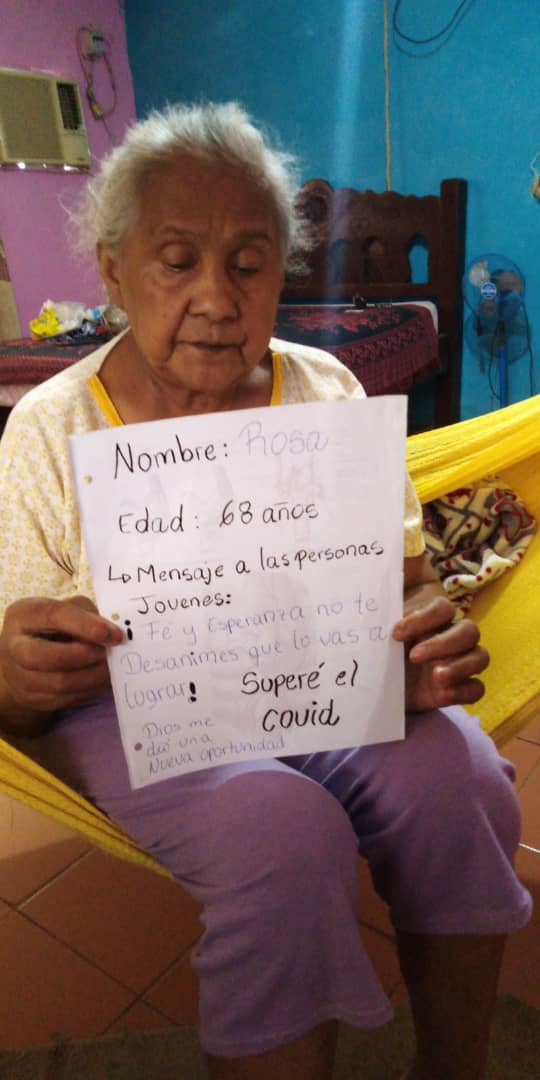 Nombre: Rosa
Edad: 68 años
↳ Mensaje a las personas
Jovenes:
¡ Fé y Esperanza no te
Desanimes que lo vas a
lograr!
Superé el
covid
• Dios me
dió una
Nueva oportunidad